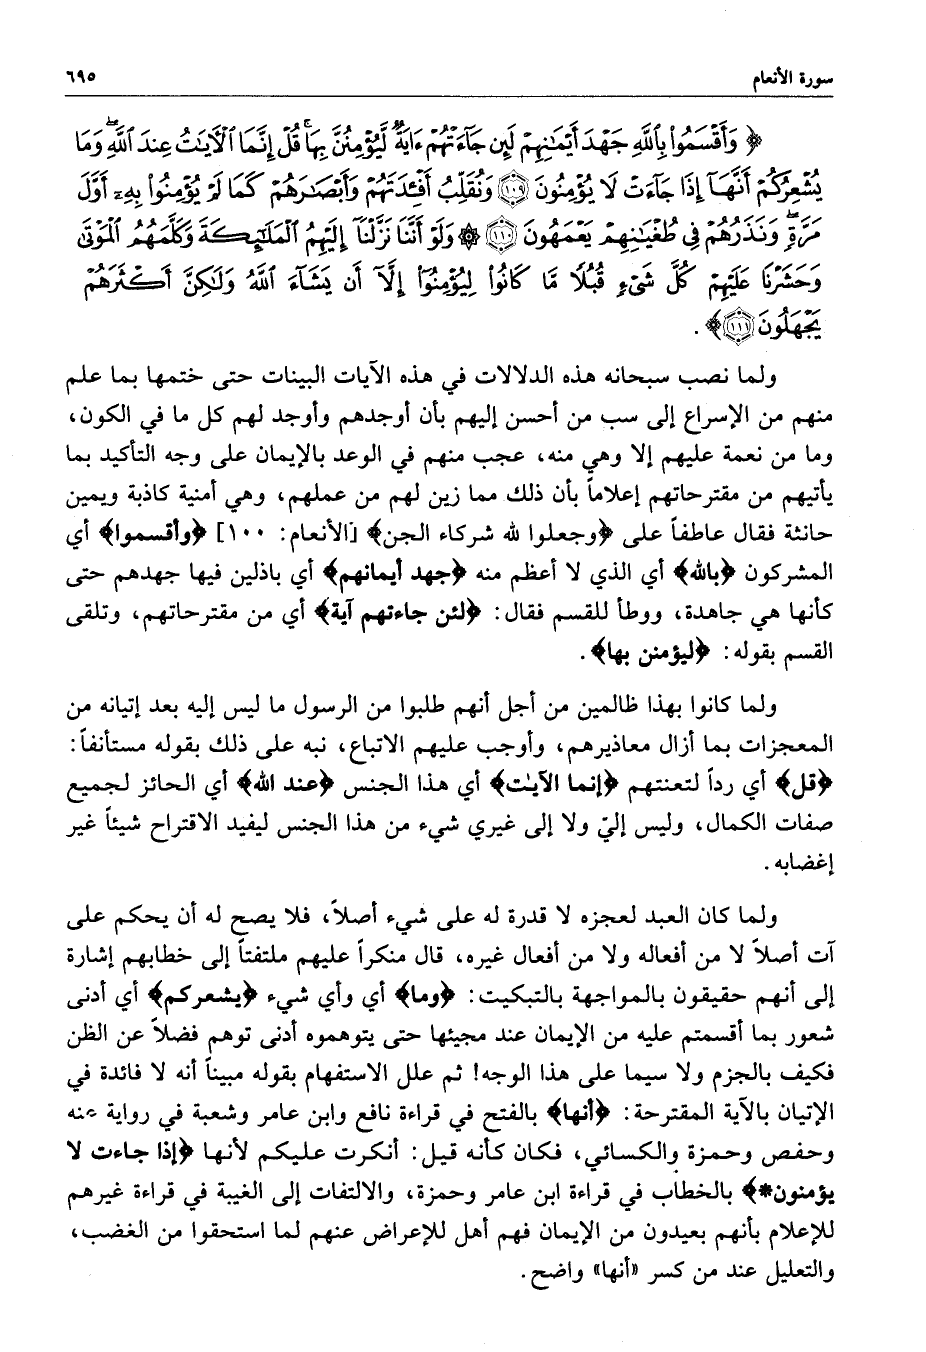 سورة الأنعام ٦٩٥
﴿ وَأَقْسَمُوا۟ بِٱللَّهِ جَهْدَ أَيْمَـٰنِهِمْ لَئِن جَآءَتْهُمْ ءَايَةٌ لَّيُؤْمِنُنَّ بِهَا ۚ قُلْ إِنَّمَا ٱلْـَٔايَـٰتُ عِندَ ٱللَّهِ ۖ وَمَا
يُشْعِرُكُمْ أَنَّهَآ إِذَا جَآءَتْ لَا يُؤْمِنُونَ ۝١٠٩ وَنُقَلِّبُ أَفْـِٔدَتَهُمْ وَأَبْصَـٰرَهُمْ كَمَا لَمْ يُؤْمِنُوا۟ بِهِۦٓ أَوَّلَ
مَرَّةٍ وَنَذَرُهُمْ فِى طُغْيَـٰنِهِمْ يَعْمَهُونَ ۝١١٠ ۞ وَلَوْ أَنَّنَا نَزَّلْنَآ إِلَيْهِمُ ٱلْمَلَـٰٓئِكَةَ وَكَلَّمَهُمُ ٱلْمَوْتَىٰ
وَحَشَرْنَا عَلَيْهِمْ كُلَّ شَىْءٍ قُبُلًا مَّا كَانُوا۟ لِيُؤْمِنُوٓا۟ إِلَّآ أَن يَشَآءَ ٱللَّهُ وَلَـٰكِنَّ أَكْثَرَهُمْ
يَجْهَلُونَ ۝١١١ ﴾ .
ولما نصب سبحانه هذه الدلالات في هذه الآيات البينات حتى ختمها بما علم
منهم من الإسراع إلى سب من أحسن إليهم بأن أوجدهم وأوجد لهم كل ما في الكون،
وما من نعمة عليهم إلا وهي منه، عجب منهم في الوعد بالإيمان على وجه التأكيد بما
يأتيهم من مقترحاتهم إعلاماً بأن ذلك مما زين لهم من عملهم، وهي أمنية كاذبة ويمين
حانثة فقال عاطفاً على ﴿وجعلوا لله شركاء الجن﴾ [الأنعام: ١٠٠] ﴿وأقسموا﴾ أي
المشركون ﴿بالله﴾ أي الذي لا أعظم منه ﴿جهد أيمانهم﴾ أي باذلين فيها جهدهم حتى
كأنها هي جاهدة، ووطأ للقسم فقال: ﴿لئن جاءتهم آية﴾ أي من مقترحاتهم، وتلقى
القسم بقوله: ﴿ليؤمنن بها﴾ .
ولما كانوا بهذا ظالمين من أجل أنهم طلبوا من الرسول ما ليس إليه بعد إتيانه من
المعجزات بما أزال معاذيرهم، وأوجب عليهم الاتباع، نبه على ذلك بقوله مستأنفاً:
﴿قل﴾ أي رداً لتعنتهم ﴿إنما الآيات﴾ أي هذا الجنس ﴿عند الله﴾ أي الحائز لجميع
صفات الكمال، وليس إليّ ولا إلى غيري شيء من هذا الجنس ليفيد الاقتراح شيئاً غير
إغضابه.
ولما كان العبد لعجزه لا قدرة له على شيء أصلاً، فلا يصح له أن يحكم على
آت أصلاً لا من أفعاله ولا من أفعال غيره، قال منكراً عليهم ملتفتاً إلى خطابهم إشارة
إلى أنهم حقيقون بالمواجهة بالتبكيت: ﴿وما﴾ أي وأي شيء ﴿يشعركم﴾ أي أدنى
شعور بما أقسمتم عليه من الإيمان عند مجيئها حتى يتوهموه أدنى توهم فضلاً عن الظن
فكيف بالجزم ولا سيما على هذا الوجه! ثم علل الاستفهام بقوله مبيناً أنه لا فائدة في
الإتيان بالآية المقترحة: ﴿أنها﴾ بالفتح في قراءة نافع وابن عامر وشعبة في رواية عنه
وحفص وحمزة والكسائي، فكان كأنه قيل: أنكرت عليكم لأنها ﴿إذا جاءت لا
يؤمنون*﴾ بالخطاب في قراءة ابن عامر وحمزة، والالتفات إلى الغيبة في قراءة غيرهم
للإعلام بأنهم بعيدون من الإيمان فهم أهل للإعراض عنهم لما استحقوا من الغضب،
والتعليل عند من كسر «أنها» واضح.